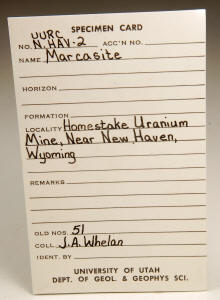 UURC SPECIMEN CARD
NO. N.HAV-2 ACC'N NO.
NAME Marcasite
HORIZON
FORMATION
LOCALITY Homestake Uranium
Mine, Near New Haven,
Wyoming
REMARKS
OLD NOS. 51
COLL. J.A. Whelan
IDENT. BY
UNIVERSITY OF UTAH
DEPT. OF GEOL. & GEOPHYS SCI.